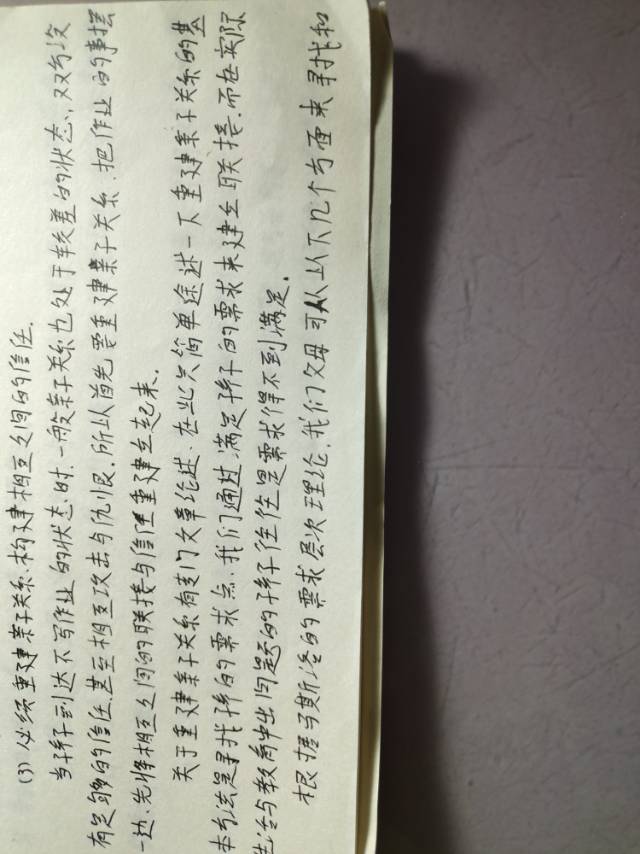 (3) 必须重建亲子关系.构建相互之间的信任.
当孩子到达不写作业的状态时.一般亲子关系也处于较差的状态,双方没
有足够的信任.甚至相互攻击与仇恨.所以首先要重建亲子关系.把作业的事摆
一边.先将相互之间的联接与信任重建立起来.
关于重建亲子关系有专门文章论述.在此只简单途述一下重建亲子关系的基
本方法是寻找孩子的需求点.我们通过满足孩子的需求来建立联接.而在实际
生活与教育中出问题的孩子往往是需求得不到满足.
根据马斯洛的需求层次理论.我们父母可从以下几个方面来寻找和